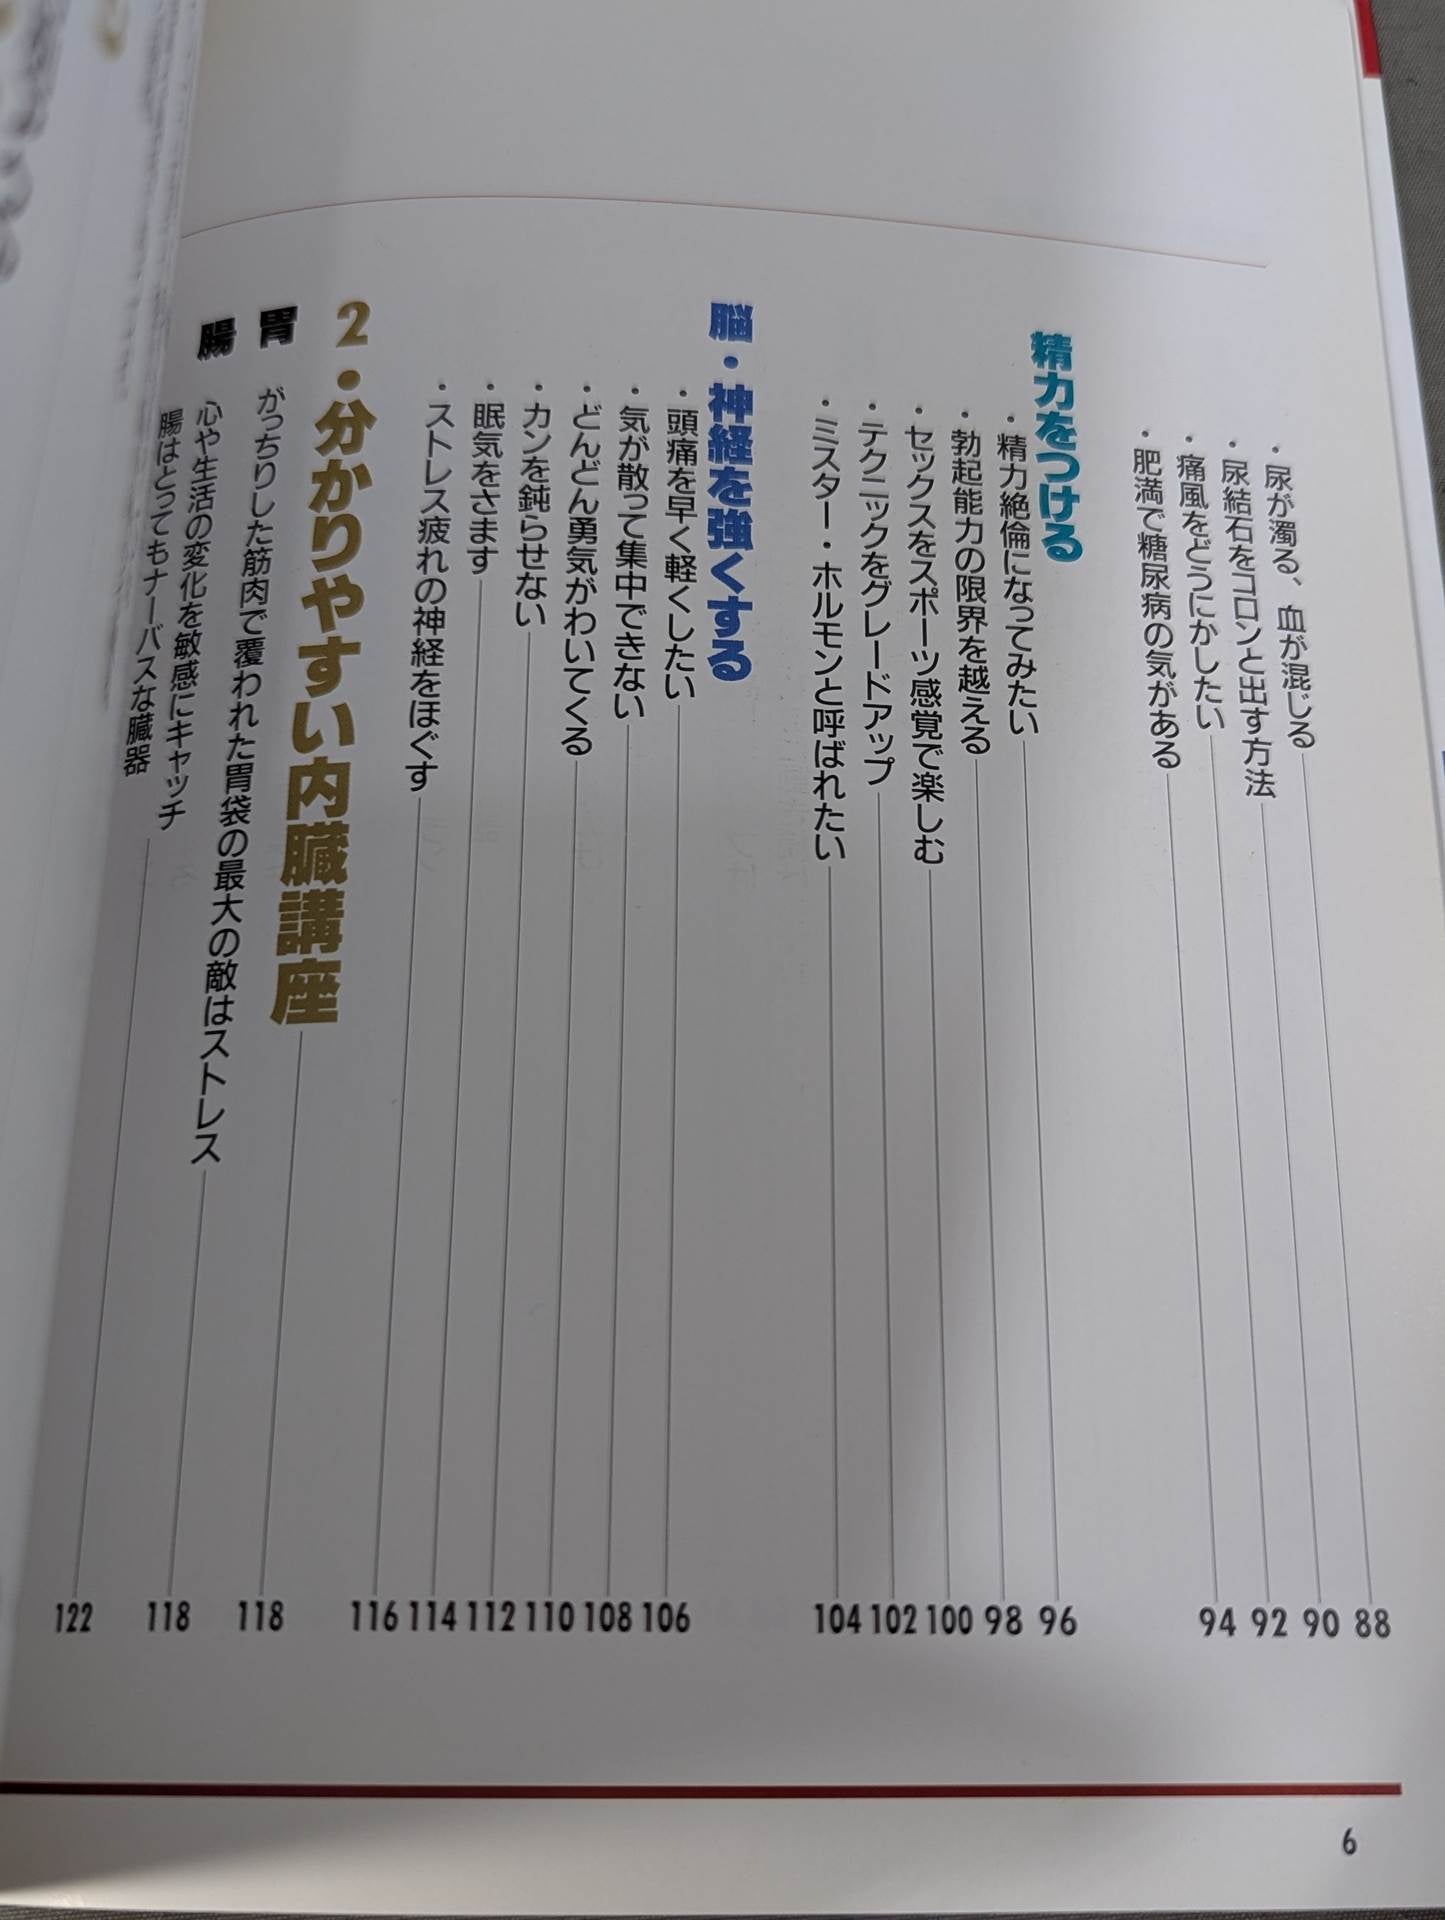 ・尿が濁る、血が混じる 88
・尿結石をコロンと出す方法 90
・痛風をどうにかしたい 92
・肥満で糖尿病の気がある 94
精力をつける
・精力絶倫になってみたい 96
・勃起能力の限界を越える 98
・セックスをスポーツ感覚で楽しむ 100
・テクニックをグレードアップ 102
・ミスター・ホルモンと呼ばれたい 104
脳・神経を強くする
・頭痛を早く軽くしたい 106
・気が散って集中できない 108
・どんどん勇気がわいてくる 110
・カンを鈍らせない 112
・眠気をさます 114
・ストレス疲れの神経をほぐす 116
2・分かりやすい内臓講座 118
胃 がっちりした筋肉で覆われた胃袋の最大の敵はストレス 118
腸 心や生活の変化を敏感にキャッチ 122
腸はとってもナーバスな臓器
6